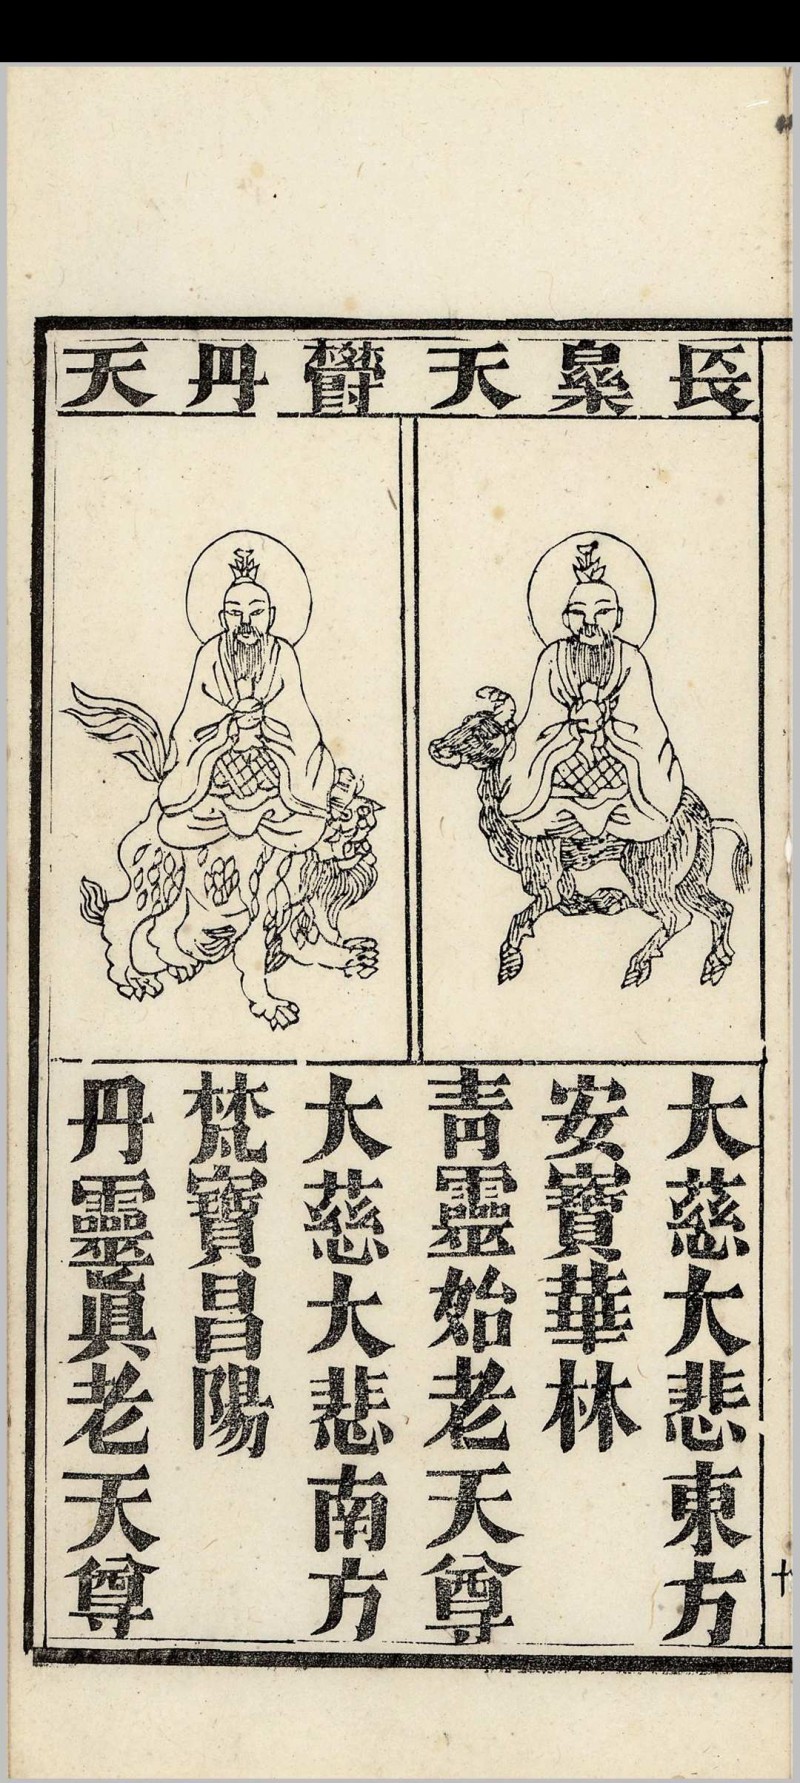 長桑天 鬱丹天
大慈大悲東方
安寶華林
青靈始老天尊
大慈大悲南方
梵寶昌陽
丹靈眞老天尊